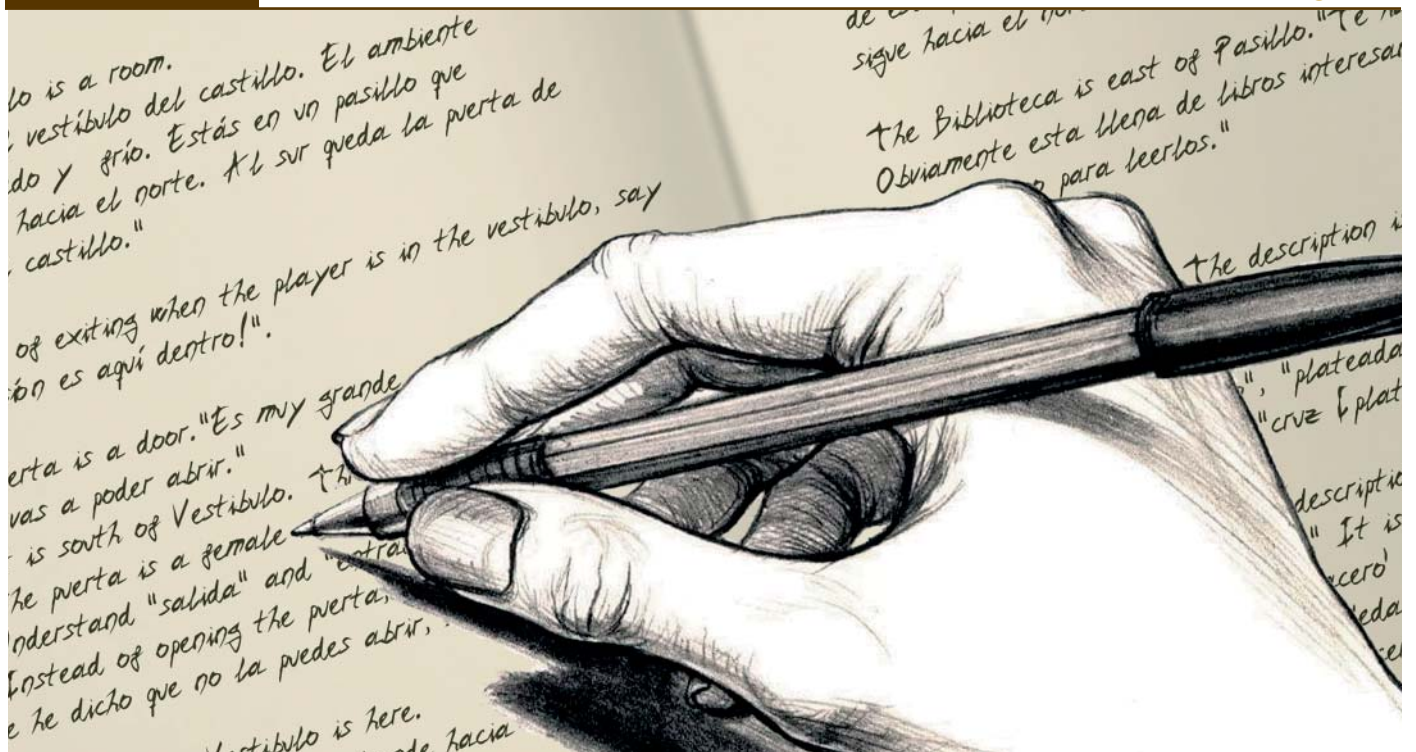 lo is a room.
vestíbulo del castillo. El ambiente
do y frío. Estás en un pasillo que
hacia el norte. Al sur queda la puerta de
castillo."
of exiting when the player is in the vestibulo, say
ón es aquí dentro!".
erta is a door. "Es muy grande
vas a poder abrir."
is south of Vestibulo. Th
he puerta is a female
nderstand "salida" and "entra
Instead of opening the puerta,
e he dicho que no la puedes abrir,
Vestibulo is here.
hacia
de
sigue hacia el nor
The Biblioteca is east of Pasillo. "Te
Obviamente esta llena de libros interesan
para leerlos."
The description i
", "plateada
"cruz [plat
descriptio
" It is
acero'
eda